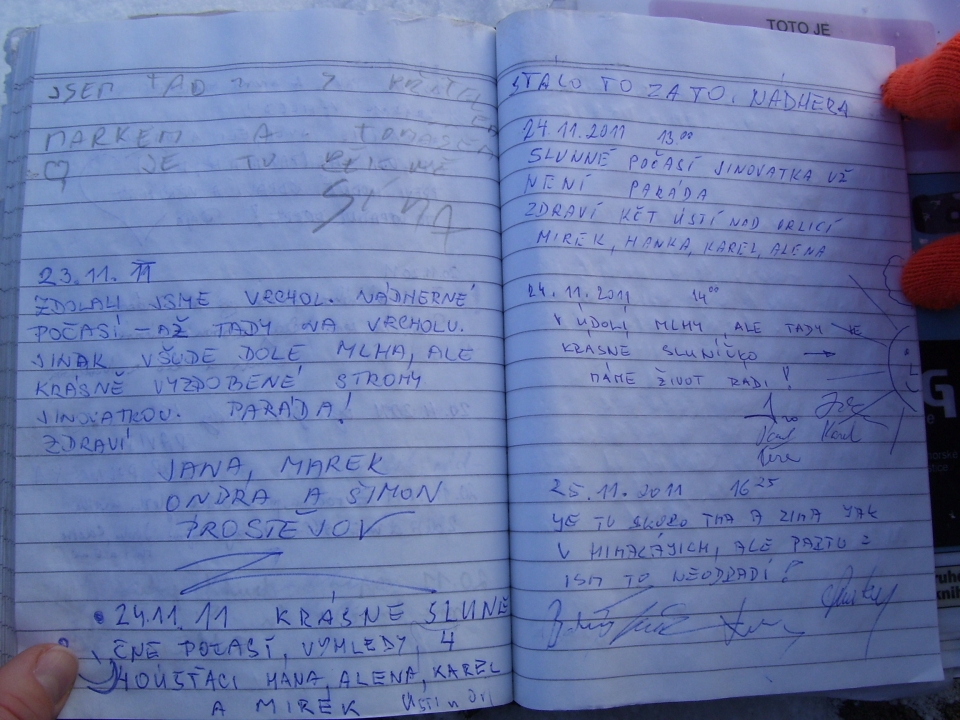 JSEM TAD
MARKEM A
JE TU
SIMA
23.11. 11
ZDOLALI JSME VRCHOL. NÁDHERNÉ
POČASÍ - AŽ TADY NA VRCHOLU.
JINAK VŠUDE DOLE MLHA, ALE
KRÁSNĚ VYZDOBENÉ STROMY
JINOVATKOU. PARÁDA!
ZDRAVÍ
JANA, MAREK
ONDRA A ŠIMON
PROSTĚJOV
24.11.11 KRÁSNE SLUNE
ČNÉ POČASÍ, VÝHLEDY, 4
HANA, ALENA, KAREL
A MIREK ÚSTÍ n ORL
STALO TO ZA TO. NÁDHERA
24.11.2011 13.00
SLUNNÉ POČASÍ JINOVATKA UŽ
NENÍ PARÁDA
ZDRAVÍ KČT ÚSTÍ NAD ORLICÍ
MIREK, HANKA, KAREL, ALENA
24.11.2011 14.00
V ÚDOLÍ MLHY, ALE TADY JE
KRÁSNÉ SLUNÍČKO →
MÁME ŽIVOT RÁDI!
25.11.2011 16 25
JE TU SKORO TMA A ZIMA JAK
V HIMALÁJÍCH, ALE
TO NEODRADÍ!
TOTO JE
G